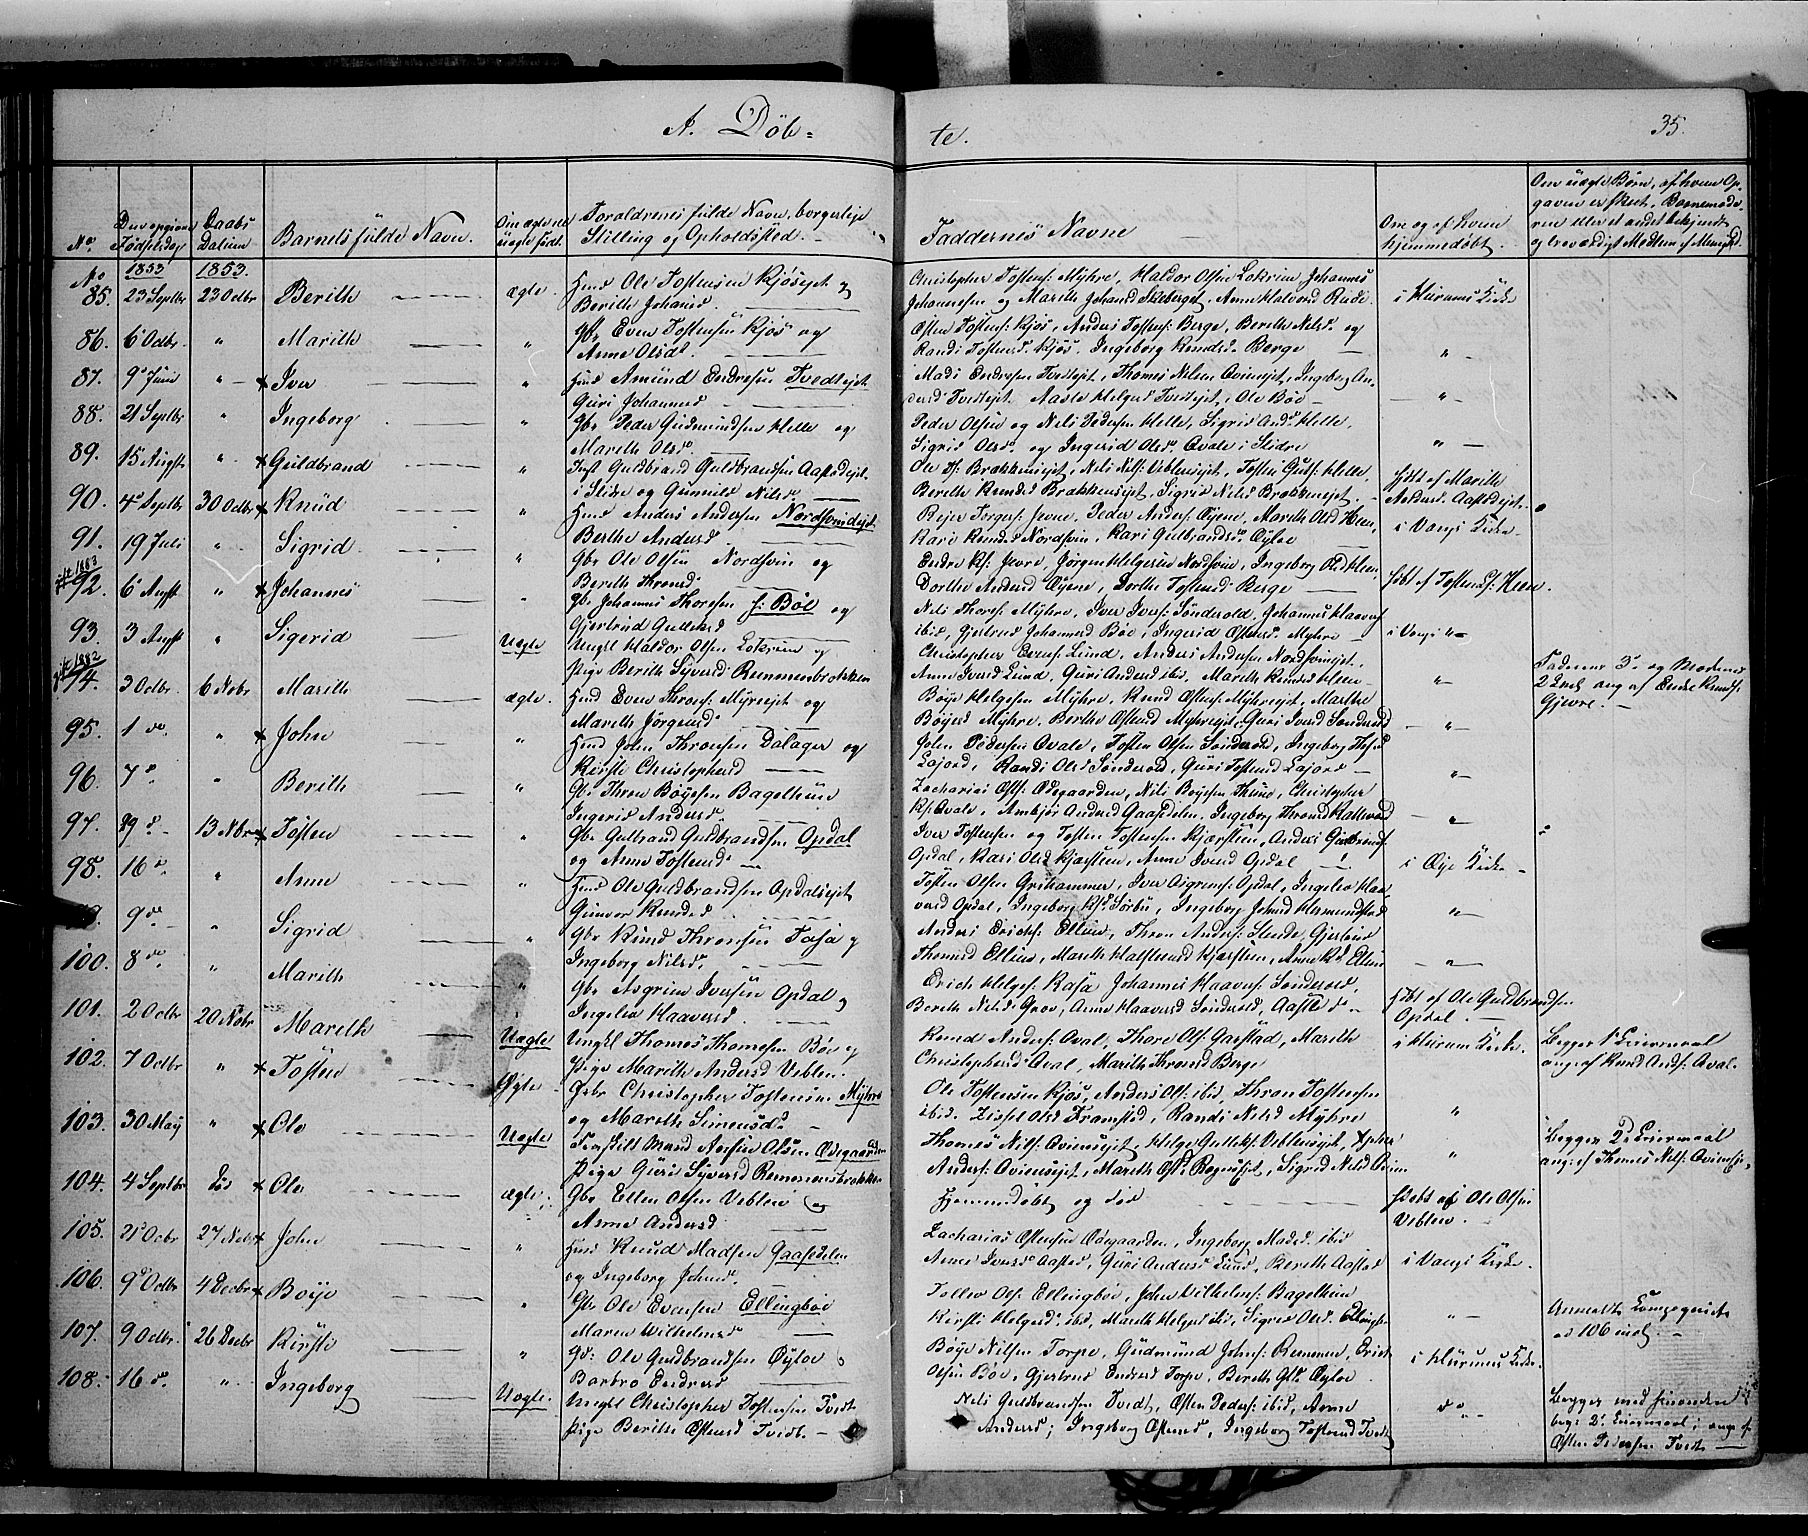 A. Döb-
te.
35.
No.
Den opgivne Födselsdag
Daabs Datum
Barnets fulde Navn.
Om ægte eller uægte födt.
Forældrenes fulde Navn, borgerlige Stilling og Opholdsted.
Faddernes Navne
Om og af hvem hjemmedöbt.
Om uægte Börn, af hvem Opgaven er skeet, Barnemoderen eller et andet bekjendt og troværdigt Medlem af Menighd.
No 1853 1853.
85. 23 Septbr 23 Octbr Berith ægte. Huusd Ole Tostensen Kjösejet og
Berith Johansd.
Christopher Tostens: Myhre, Haldor Olsen Lokrim, Johannes
Johannesen og Marith Johansd Skeberget, Anne
i Hurums Kirke
86. 6 Octbr. " Marith " Gbr Even Tostensen Kjös og
Anne Olsd.
Östen Tostens: Kjös, Anders Tostens: Berge, Berith Nilsd. og
Randi Tostensd. Kjös, Ingeborg Knudsd. Berge
"
87. 9 Juni " x Iver " Huusd Amund Endresen Tvedtejet
Guri Johannesd
Mads Endresen Tvedtejet, Thomes Nilsen Qviensejet, Ingeborg An-
dersd Tvedtejet. Aaste Helgesd Tvedtejet, Ole Böe
"
88. 21 Septbr " Ingeborg " Gbr Peder Gudmundsen Helle og
Marith Olsd.
Peder Olsen og Nils Pedersen Helle, Sigrid And. Helle,
Sigrid Olsd. og Ingerid Olsd. Qvale i Slidre
"
89. 15 Augst " x Guldbrand " Inst Guldbrand Guldbrandsen Aastadejet
i Slidre og Gunnild Nilsd
Ole Brakkensejet, Nils Nils: Veblensejet, Tosten Helle
Berith Knudsd Brakkensejet, Sigrid Nilsd Brakkensejet.
Hjdbt af Marith
Andersd. Aastadejet.
90. 4 Septbr 30 Octbr x Knud " Huusd Anders Andersen Nordsvindejet.
Berthe Andersd
Rejer Torgers: Jevne, Peder Anders: Öjene, Marith Olsd Heen,
Kari Knudsd Nordsvin, Kari Gulbrandsd. Öyloe
i Vangs Kirke
91. 19 Juli " Sigrid " Gbr Ole Olsen Nordsvin og
Berith Thronsd
Endre Jevne, Jörgen Helgesen Nordsvin, Ingeborg
Dorthe Andersd Öjene, Dorthe Tostensd Berge
1883
92. 6 Augst " x Johannes " Gbr. Johannes Thoresen f: Böe og
Gjertrud Gulliksd
Nils Thores: Myhre, Iver Ivers: Sönderold, Johannes Haavers:
ibid, Gjertrud Johannesd Böe, Ingerid Östensd. Myhre
döbt af Tosten Heen.
93. 3 Augst " Sigerid Uægte Ungkl Haldor Olsen Lokrim og
Pige Berith Syversd Remmenbrokken
Christopher Evens: Lund, Anders Andersen Nordsvinejet,
Anne Iversd Lund, Guri Andersd ibid, Marith Knudsd Heen
i Vangs "
Faderens 3' og Moderens
2 Leiermaal ang af Endre Knuds:
Gjevre.
1882
94. 3 Octbr. 6 Nobr. Marith ægte. Huusd Even Throns: Myrejet og
Marith Jörgensd
Böye Helgesen Myhre, Knud Östens: Myhrejet, Marthe
Böyesd Myhre, Berthe Östensd Myhrejet, Guri Iversd Sönderold
"
95. 1 do. " x John " Huusd John Thronsen Dalager og
Kirsti Christophersd
John Pedersen Qvale, Tosten Olsen Sönderold, Ingeborg
Lajord, Randi Olsd Sönderold, Guri Tostensd Lajord
"
96. 7 d. " Berith " Gbr Thron Böyesen Bagethuns
Ingerid Andersd.
Zacharias Östs: Ödegaarden, Nils Boyesen Thune, Christopher
Qvale, Ambjör Andersd Gaasedelen, Ingeborg Thronsd Kattevold
"
97. 29 d. 13 Nbr. x Tosten " Gbr Gulbrand Guldbrandsen Opdal
og Anne Tostensd.
Iver Tostensen og Tosten Tostensen Kjærstein, Anders
Opdal, Kari Olsd Kjærstein, Anne Iversd Opdal
"
98. 16 d. " Anne " Huusd Ole Guldbrandsen Opdalsejet
Gunvor Knudsd
Tosten Olsen Grihammer, Iver Asgrims: Opdal, Ingeleiv Haa-
versd Opdal, Ingeborg Sörbu, Ingeborg Johnsd Hermundstad
i Öye Kirke
9 do. " Sigrid " Gbr Knud Thronsen Fosse og
Ingeborg Nilsd.
Anders Erichs: Ellien, Thron Anders: Steede, Gjertrud
Thomesd Ellien, Marith Halstensd Kjærstein, Anne Ellien
"
100. 8 do. " Marith " Gbr Asgrim Iversen Opdal og
Ingeleiv Haaversd.
Erich Helges: Kasa, Johannes Haavers: Sönderold,
Berith Nilsd. Grov, Anne Haaversd Sönderold, Aaste
"
101. 2 Octbr 20 Nobr Marith Uægte Ungkl Thomes Thomesen Böe og
Pige Marith Andersd Veblen.
Knud Anders: Qval, Thore Ols: Garstad, Marith
Christophersd Qval, Marith Thronsd Berge
Hjdbt af Ole Guldbrandsen
Opdal.
Begges 1' Leiermaal
ang. af Knud Ands: Qval.
102. 7 Octbr " x Tosten Ægte Gbr Christopher Tostensen Myhre
og Marith Simensd.
Ole Tostensen Kjös, Anders Ols: ibid, Thron Tostensen
ibid. Sissel Olsd Framstad, Randi Nilsd Myhre
i Hurums Kirke.
103. 30 May " x Ole Uægte Fraskilt Mand Östen Olsen Ödegaarden
Pige Guri Syversd Remmensbrokken
Thomes Nils: Qviensejet, Helge Gulliks: Veblensejet,
Anders: Qviensejet, Marith, Sigrid Nilsd
"
Begges 2 Leiermaal
ang: af Thomes Nils: Qviensej.
104. 4 Septbr Död x Ole ægte. Gbr Ellen Olsen Veblen og
Anne Andersd
Hjemmedöbt og död
Hjdöbt af Ole Olsen
Veblen.
105. 21 Octbr 27 Nobr x John " Huusd Knud Madsen Gaasedelen
og Ingeborg Johnsd.
Zacharias Östensen Ödegaarden, Ingeborg Madsd. ibid
Anne Iversd Aastad, Guri Andersd Lund, Berith Aastad
i Vangs Kirke.
106. 9 Octbr 4 Decbr x Böye " Gbr Ole Evensen Ellingböe
Maren Wilhelmsd
Tollev Ols: Ellingböe, John Wilhelms: Bagethun
Kirsti Helgesd. ibid, Marith Helgesd ibid, Sigrid Olsd. Ellingbö
"
107. 9 Octbr. 26 Decbr Kirsti " Gbr: Ole Guldbrandsen Öyloe
Barbro Endresd
Böye Nilsen Torpe, Gudmund Johns: Remmen, Erich
Olsen Böe, Gjertrud Endresd Torpe, Berith Öyloe
i Hurums Kirke.
108. 16 d. " Ingeborg Uægte. Ungkl Christopher Tostensen Tvedt
Pige Berith Östensd Tvedt
Nils Guldbrandsen Tvedt, Östen Peders: ibid, Anne
Andersd; Ingeborg Östensd, Ingeborg Tostensd Tvedt
do
Begges
2' Leiermaal; ang. af
Östen Pedersen Tvedt